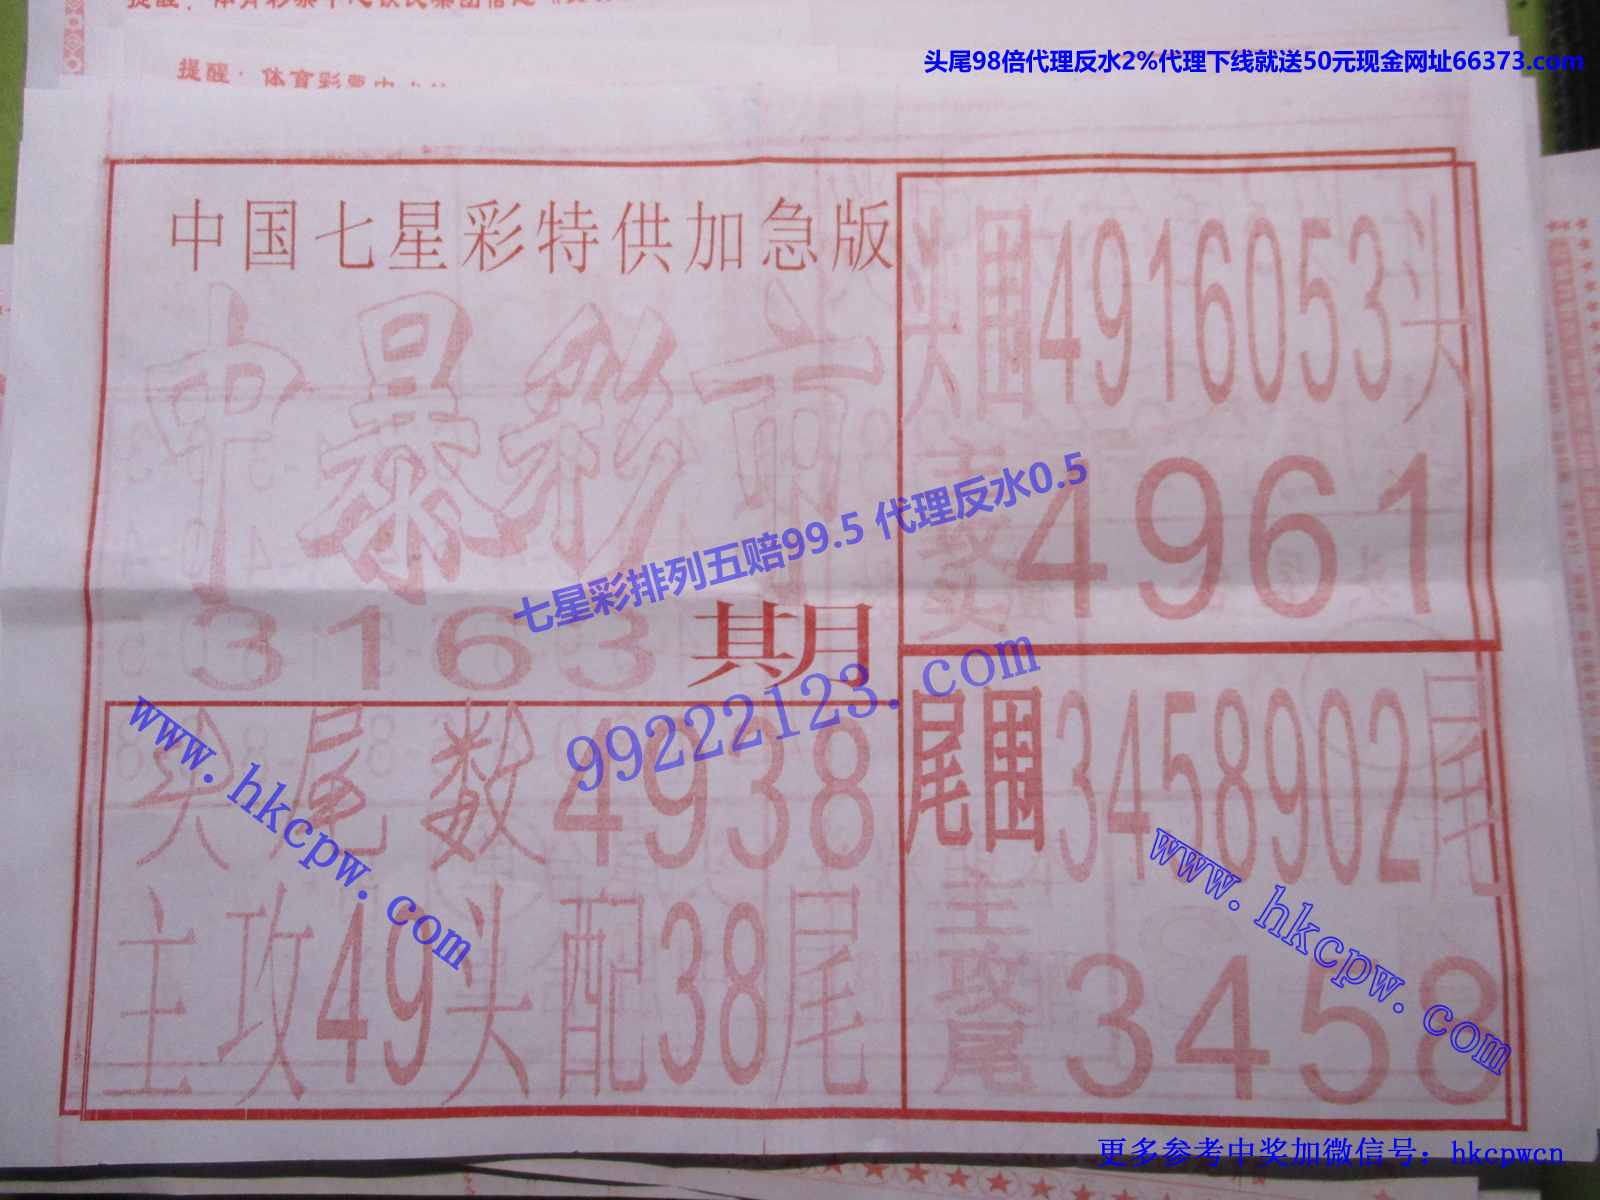 提醒：体育彩票中
头尾98倍代理反水2%代理下线就送50元现金网址66373.com
中国七星彩特供加急版
中暴彩市
3163期
头尾数4938
主攻49头配38尾
头围4916053头
主攻头4961
尾围3458902尾
主攻尾3458
七星彩排列五赔99.5 代理反水0.5
99222123.com
www.hkcpw.com
www.hkcpw.com
更多参考中奖加微信号：hkcpwcn